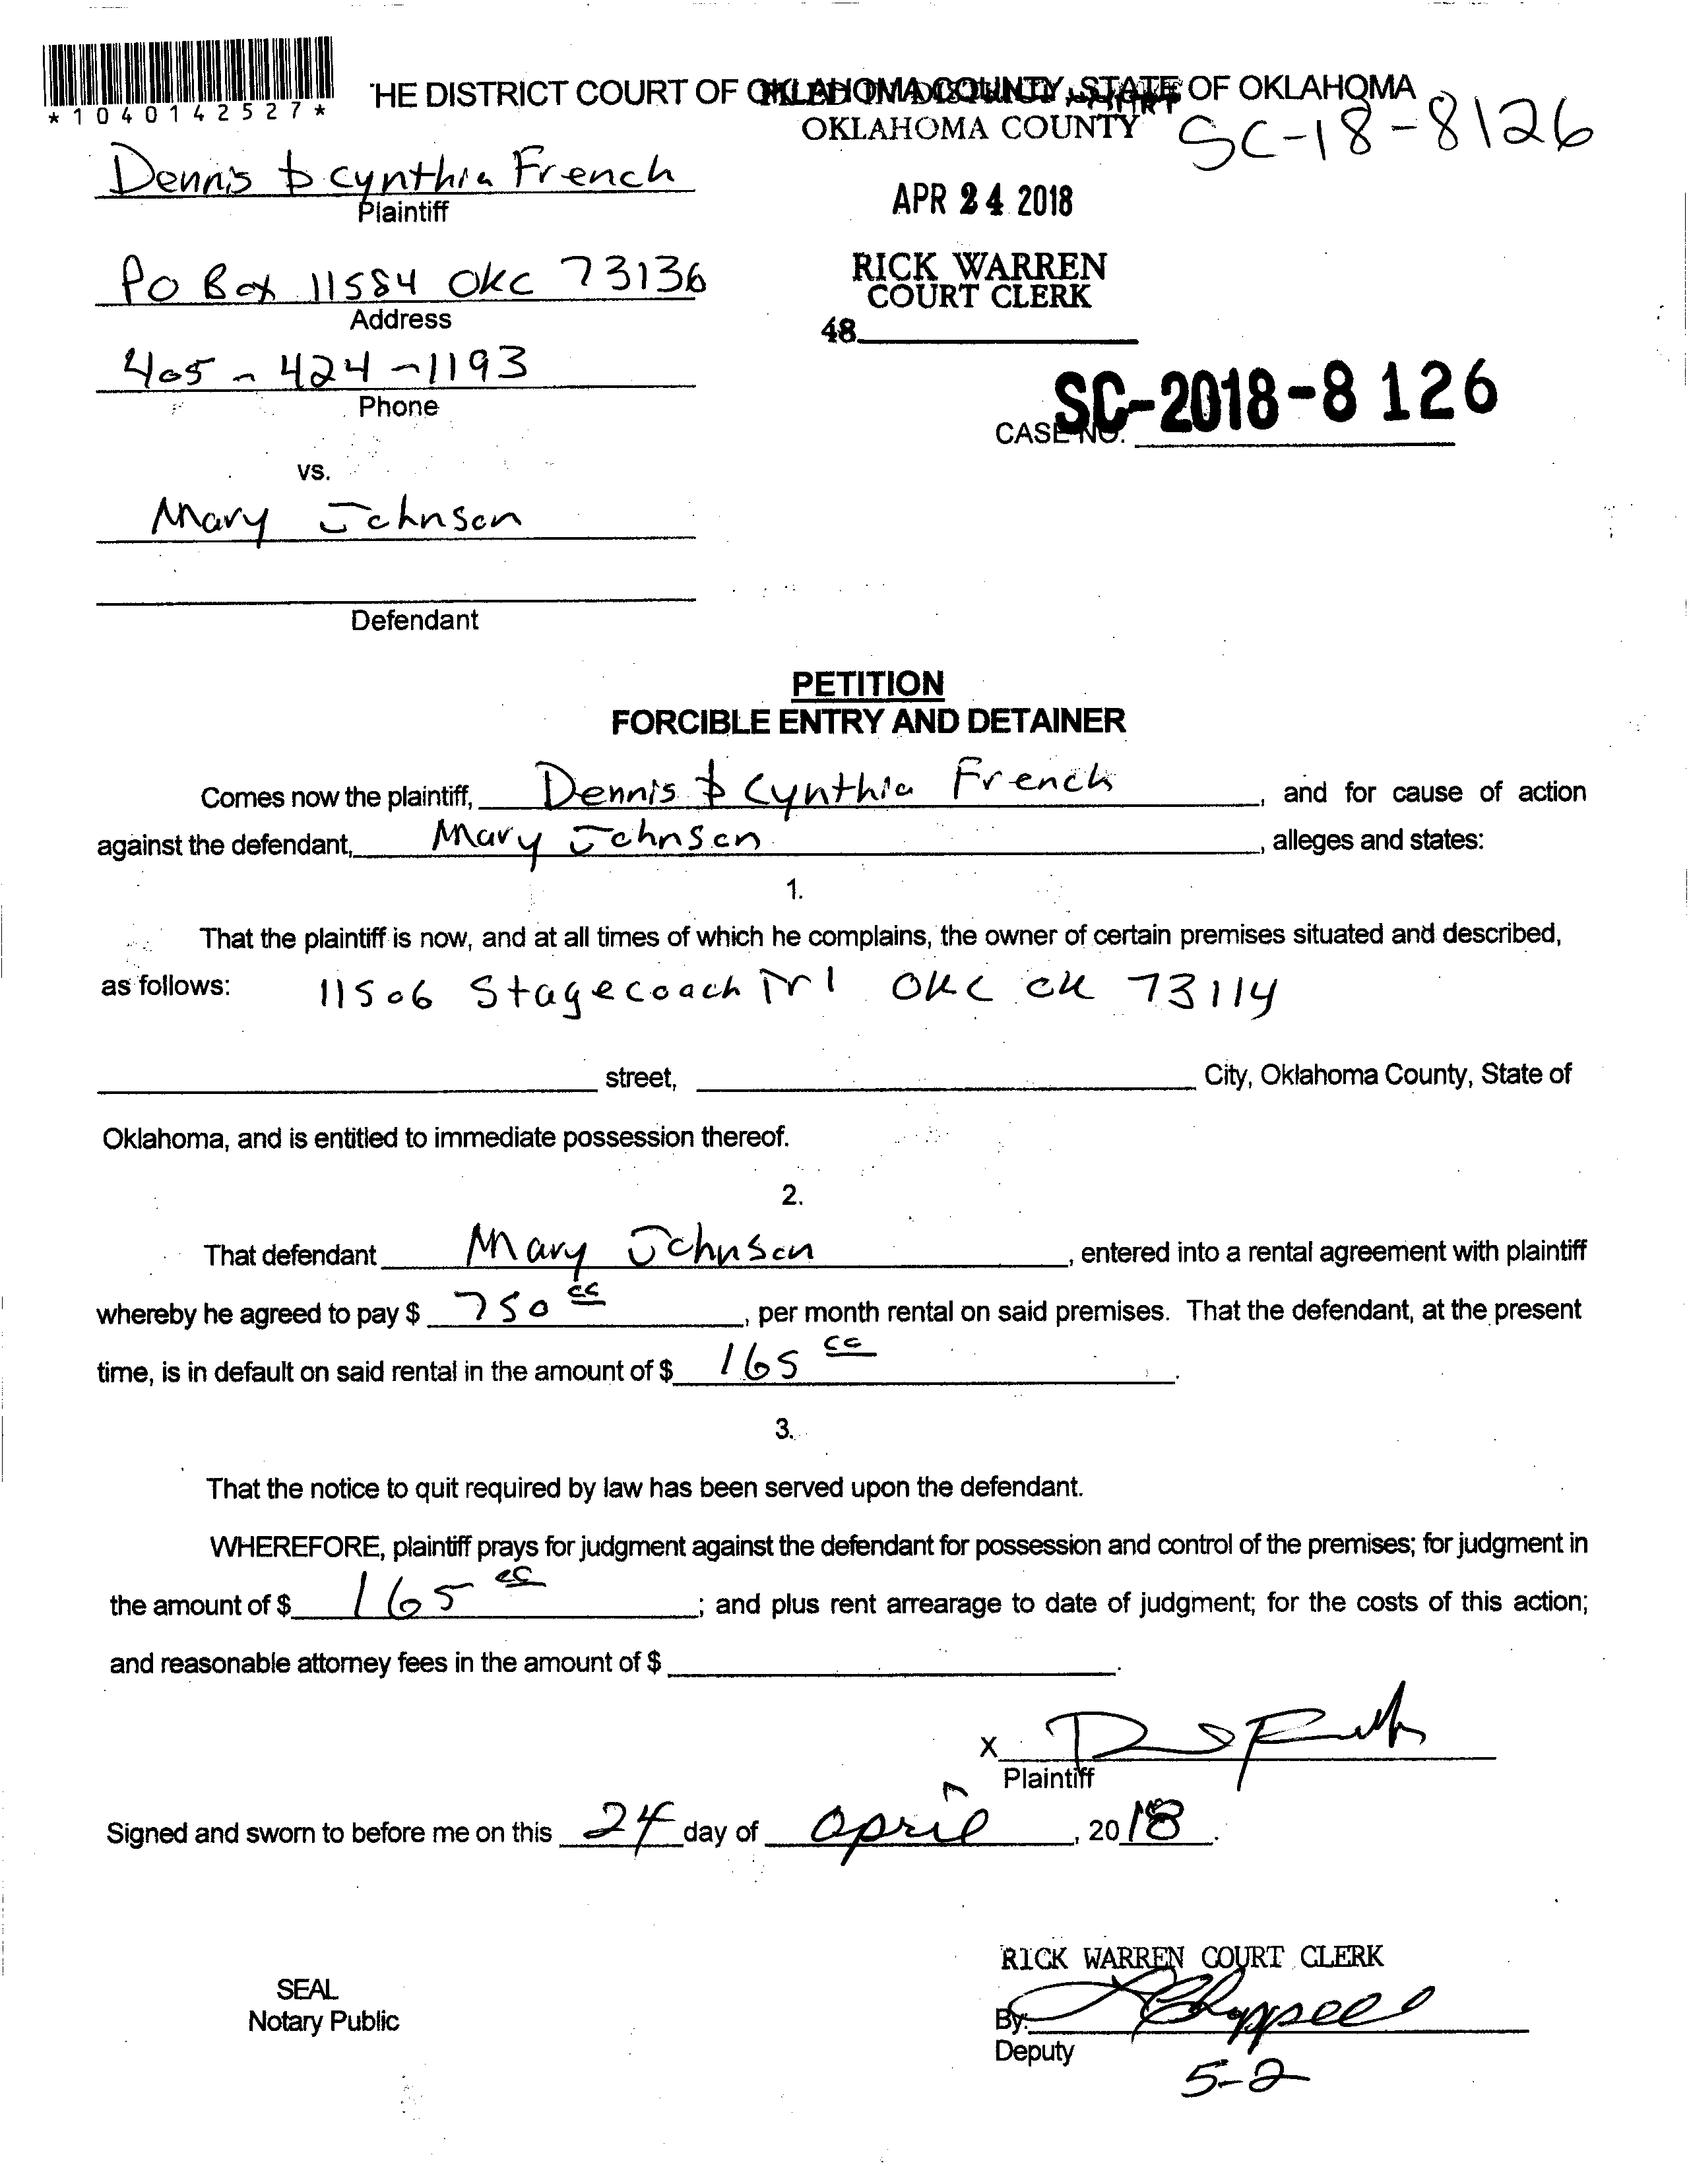 *1040142527*
'HE DISTRICT COURT OF OKLAHOMA COUNTY, STATE OF OKLAHOMA
OKLAHOMA COUNTY
SC-18-8126
Dennis & Cynthia French
Plaintiff
APR 24 2018
PO Box 11584 OKC 73136
Address
RICK WARREN
COURT CLERK
48
405-424-1193
Phone
CASE NO. SC-2018-8126
vs.
Mary Johnson
Defendant
PETITION
FORCIBLE ENTRY AND DETAINER
Comes now the plaintiff, Dennis & Cynthia French, and for cause of action
against the defendant, Mary Johnson, alleges and states:
1.
That the plaintiff is now, and at all times of which he complains, the owner of certain premises situated and described,
as follows: 11506 Stagecoach Trl OKC OK 73114
street, City, Oklahoma County, State of
Oklahoma, and is entitled to immediate possession thereof.
2.
That defendant Mary Johnson, entered into a rental agreement with plaintiff
whereby he agreed to pay $ 750 00, per month rental on said premises. That the defendant, at the present
time, is in default on said rental in the amount of $ 165 00.
3.
That the notice to quit required by law has been served upon the defendant.
WHEREFORE, plaintiff prays for judgment against the defendant for possession and control of the premises; for judgment in
the amount of $ 165 00; and plus rent arrearage to date of judgment; for the costs of this action;
and reasonable attorney fees in the amount of $ .
X
Plaintiff
Signed and sworn to before me on this 24 day of April, 2018.
RICK WARREN COURT CLERK
SEAL
Notary Public
By: Chappell
Deputy
5-2